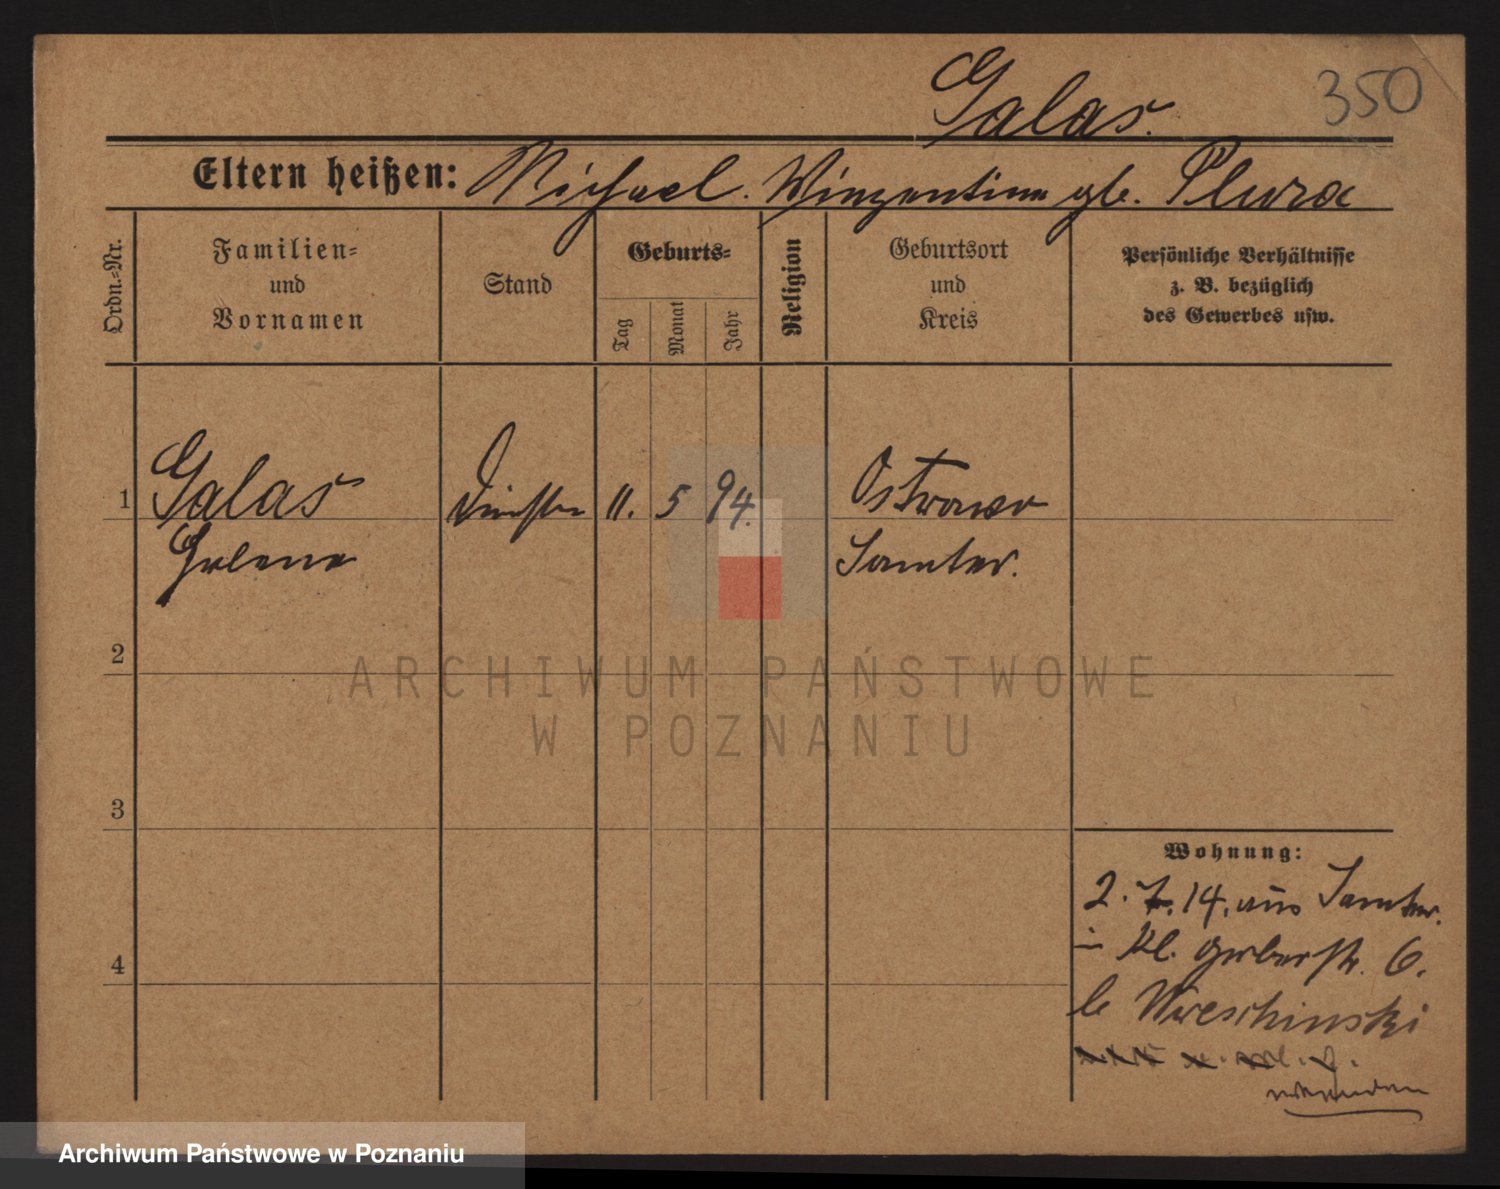 Galas.
350
Eltern heißen: Michael. Winzentine gb. Plura
Ordn.=Nr.
Familien=
und
Vornamen
Stand
Geburts=
Tag
Monat
Jahr
Religion
Geburtsort
und
Kreis
Persönliche Verhältnisse
z. B. bezüglich
des Gewerbes usw.
1 Galas 11. 5 94. Ostrowo
Helene Samter.
2
ARCHIWUM PAŃSTWOWE
W POZNANIU
3
Wohnung:
2. 7. 14. aus Samter.
in Kl. Gerberstr. 6.
4
b Wreschinski
Archiwum Państwowe w Poznaniu